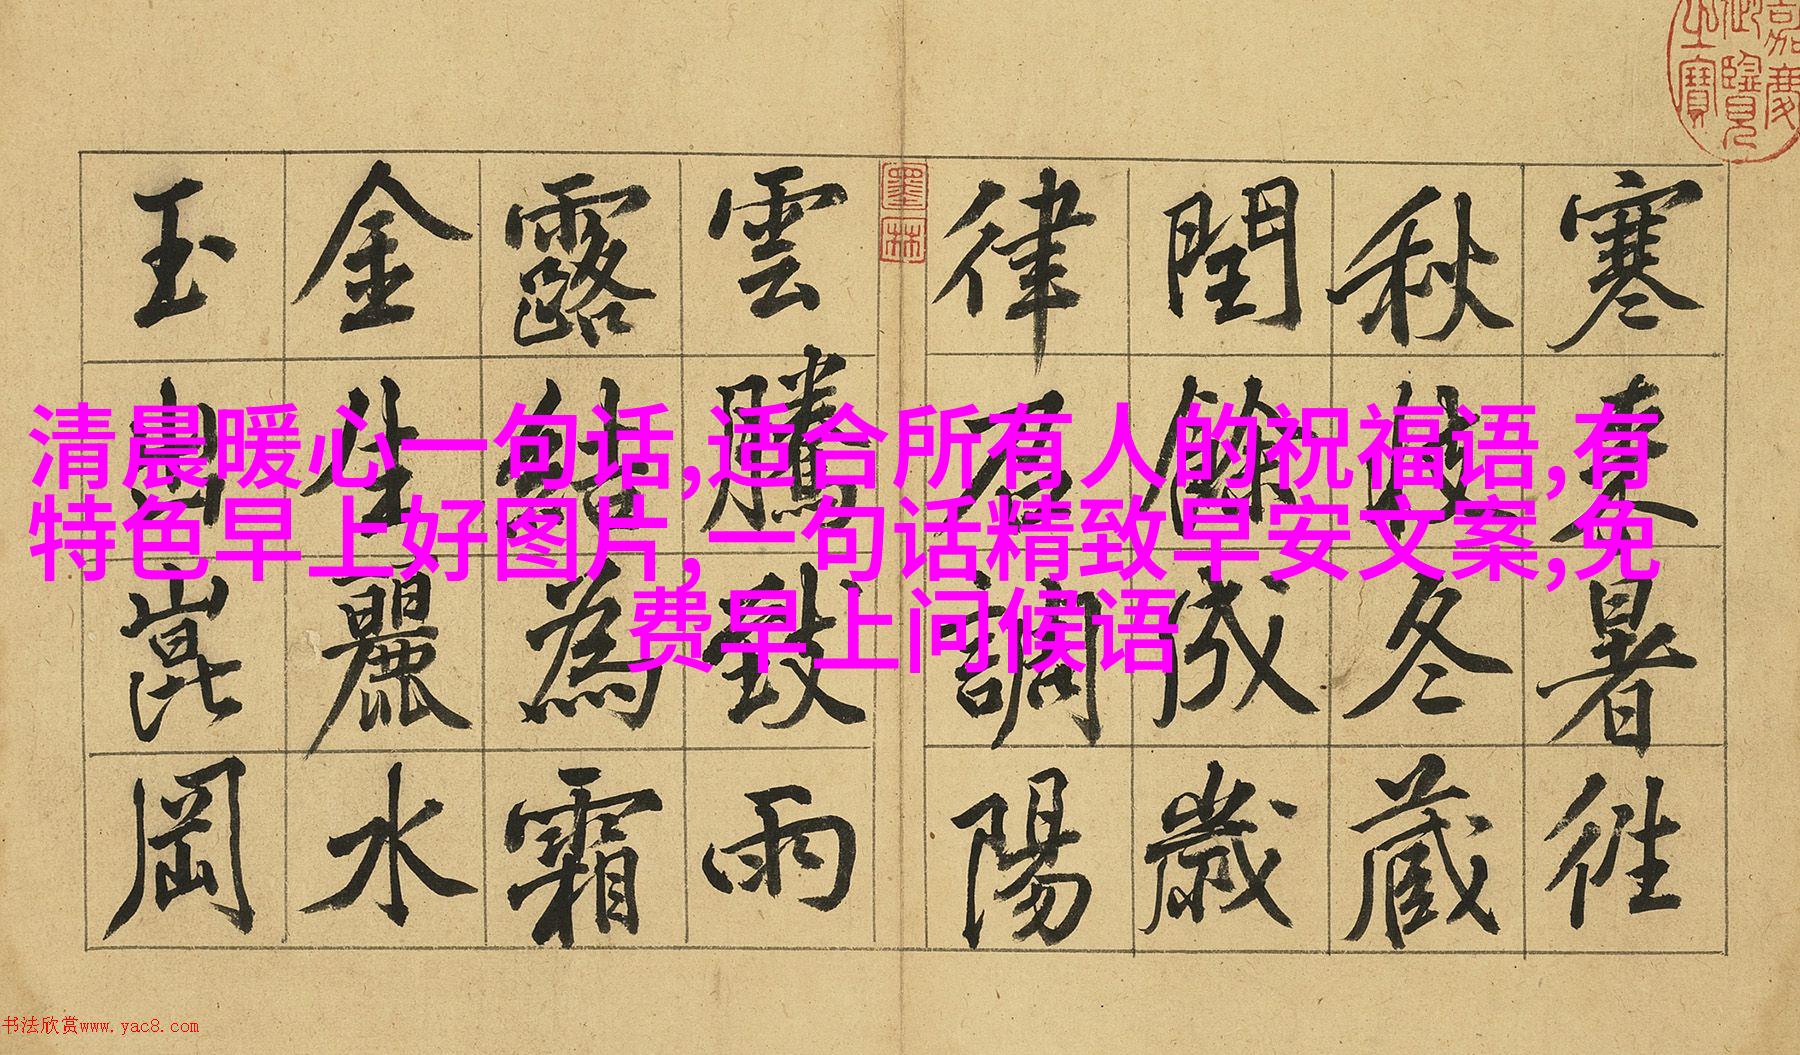 嘉慶
御覽
之寶
墨林
寒来暑徃
秋收冬蔵
閏餘成歲
律召調陽
雲騰致雨
露結為霜
金生麗水
玉出崑岡
清晨暖心一句话,适合所有人的祝福语,有
特色早上好图片,一句话精致早安文案,免
费早上问候语
书法欣赏www.yac8.com